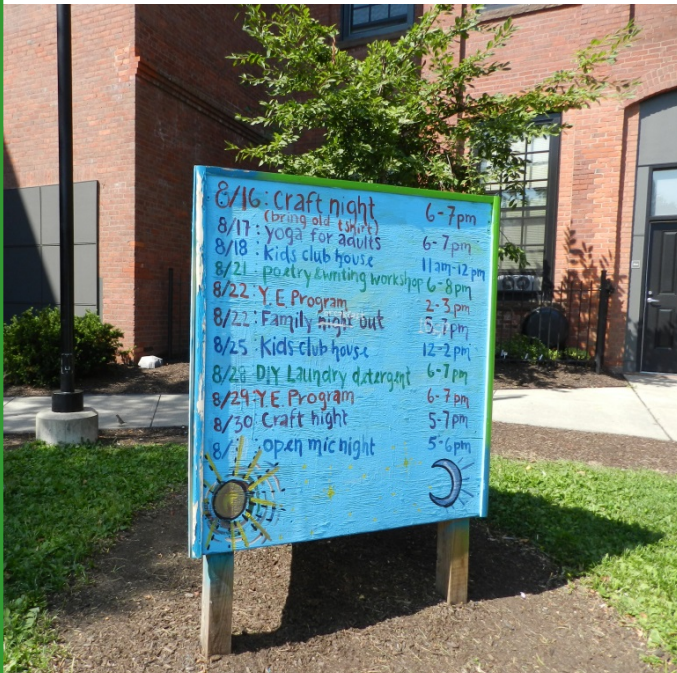 8/16: Craft night 6-7pm
(bring old tshirt)
8/17: yoga for adults 6-7pm
8/18: Kids club house 11am-12pm
8/21: poetry & writing workshop 6-8pm
8/22: Y.E Program 2-3pm
8/22: Family night out 5-7pm
8/25: Kids club house 12-2pm
8/28 DIY Laundry detergent 6-7pm
8/29: Y.E Program 6-7pm
8/30: Craft night 5-7pm
8/ : open mic night 5-6pm